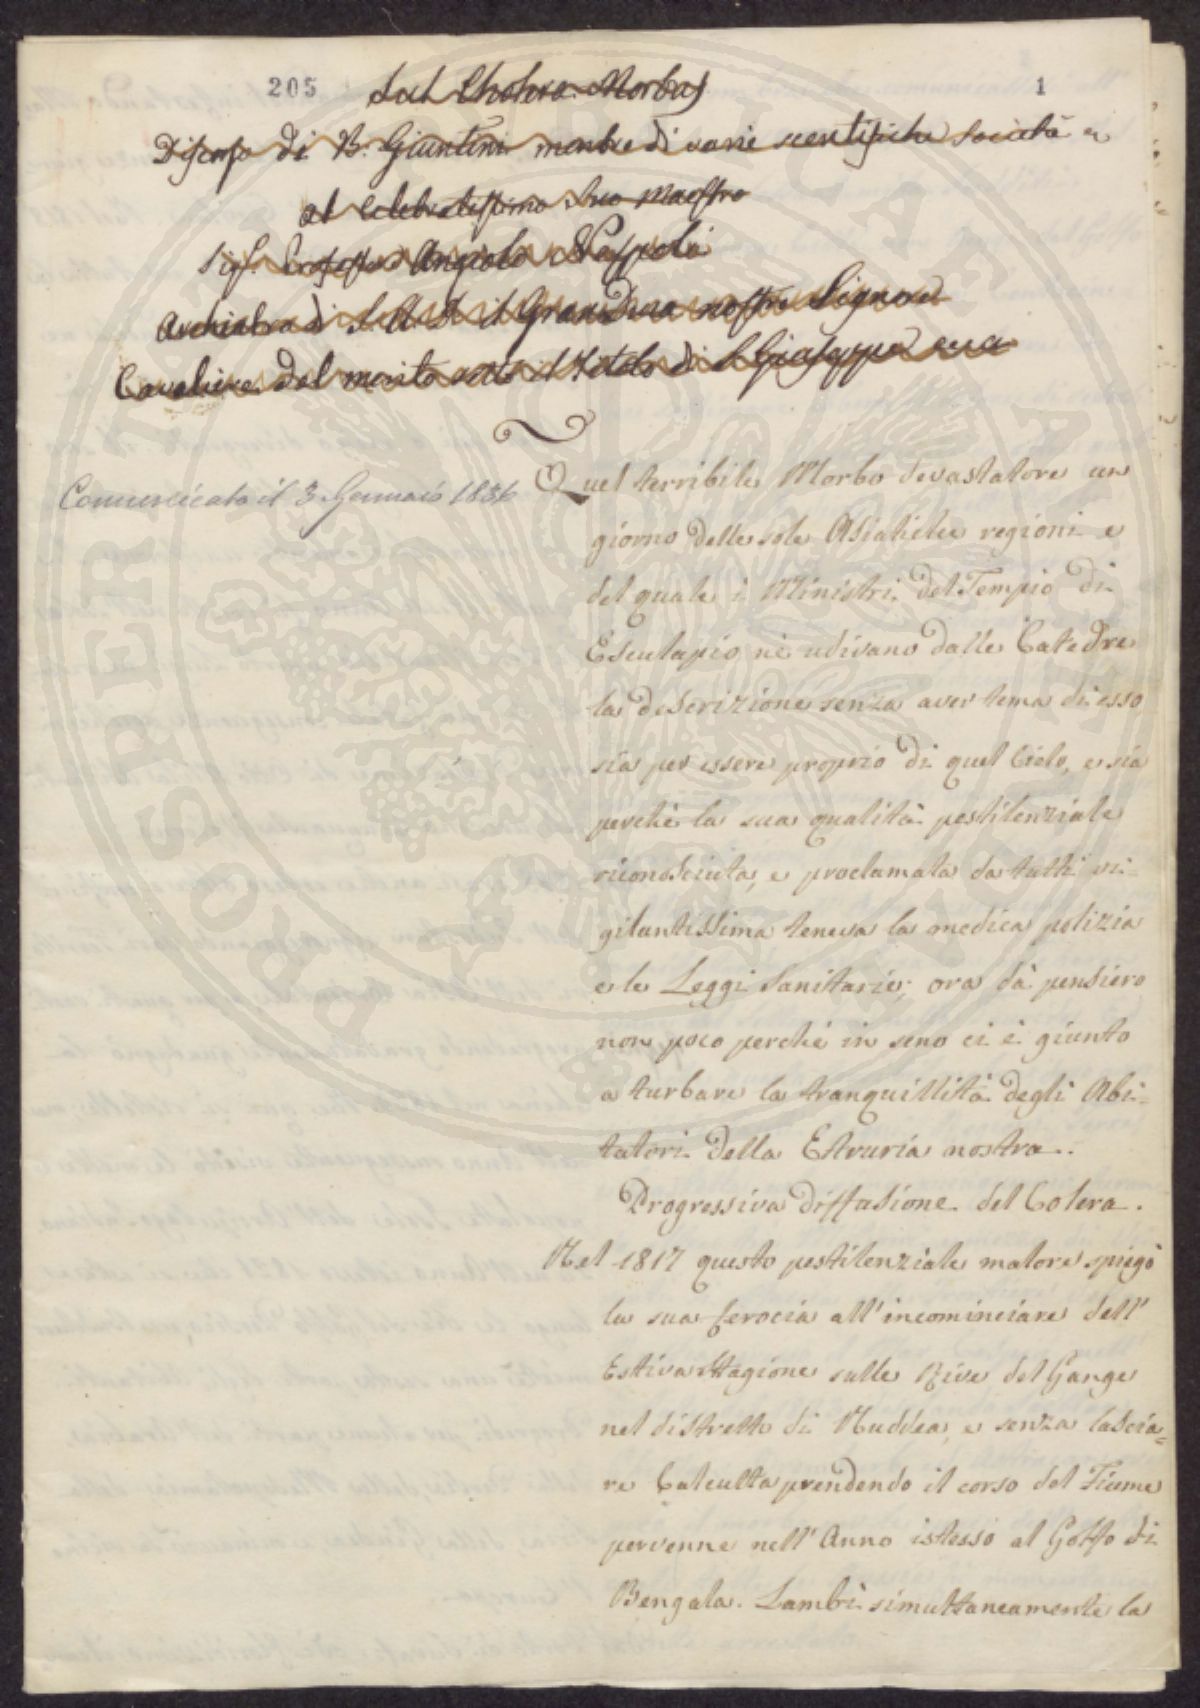 205
1
Sul Cholera Morbus
Discorso di B. Giuntini membro di varie scentifiche Società
al Celebratissimo Suo Maestro
Sig.
Archiatra di S. A. I. il Gran Duca nostro Signore
Cavaliere del merito sotto il Titolo di S. Giuseppe ecc
Comunicato il 3. Gennaio 1836
Quel terribile Morbo devastatore un
giorno delle sole Asiatiche regioni e
del quale i Ministri del Tempio di
Esculapio ne udivano dalle Catedre
la descrizione senza aver tema di esso
sia per essere proprio di quel Cielo, e sia
perchè la sua qualità pestilenziale
riconosciuta, e proclamata da tutti vi=
gilantissima teneva la medica polizia
e le Leggi Sanitarie; ora dà pensiero
non poco perchè in seno ci è giunto
a turbare la tranquillità degli Abi=
tatori della Etruria nostra.
Progressiva diffusione del Colera.
Nel 1817 questo pestilenziale malore spiegò
la sua ferocia all'incominciare dell'
Estiva Stagione sulle Rive del Gange
nel distretto di Nuddea, e senza lascia=
re Calcutta prendendo il corso del Fiume
pervenne nell'Anno istesso al Golfo di
Bengala. Lambì simultaneamente la
PROSPERITATI PUBLICAE AUGENDAE